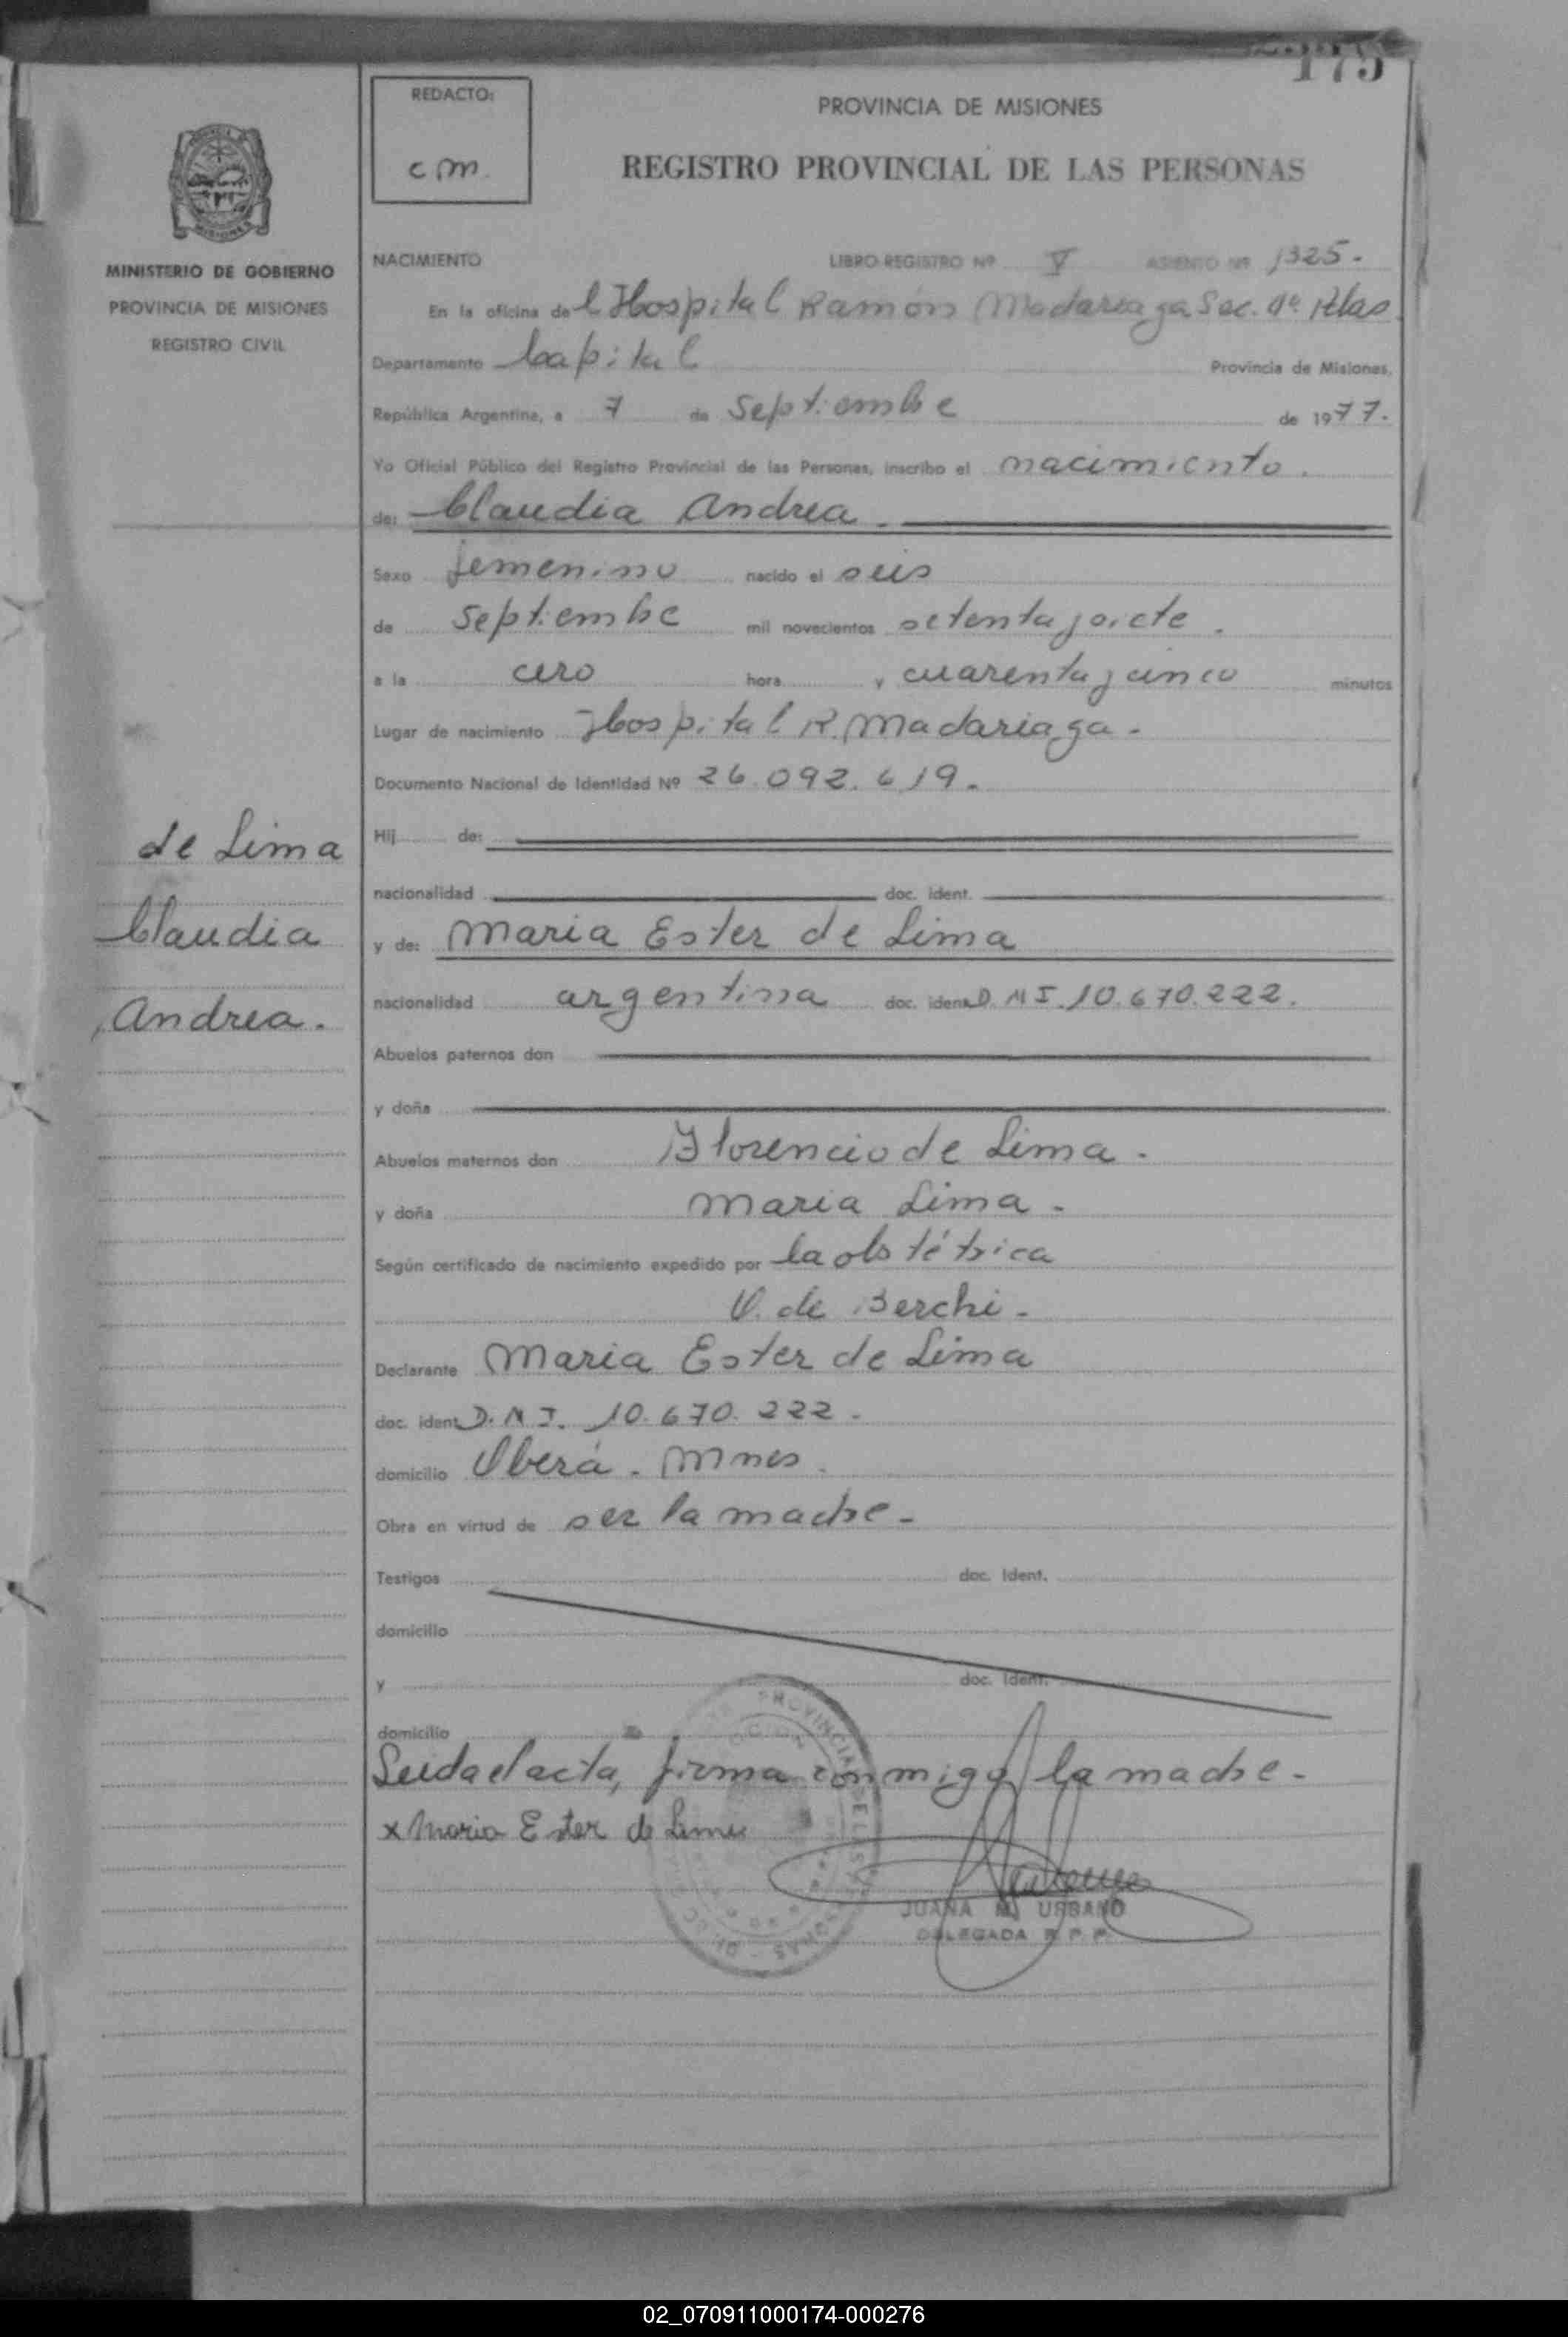 175
REDACTO:
cm.
PROVINCIA DE MISIONES
REGISTRO PROVINCIAL DE LAS PERSONAS
MINISTERIO DE GOBIERNO
PROVINCIA DE MISIONES
REGISTRO CIVIL
NACIMIENTO LIBRO REGISTRO Nº V ASIENTO Nº 1325.-
En la oficina del Hospital Ramón Madariaga Sec. 1ª Pdas.
Departamento Capital Provincia de Misiones,
República Argentina, a 7 de Septiembe de 1977.
Yo Oficial Público del Registro Provincial de las Personas, inscribo el nacimiento.
de: Claudia Andrea.
Sexo femenino nacido el seis
de Septiembe mil novecientos setenta y siete.
a la cero hora y cuarenta y cinco minutos
Lugar de nacimiento Hospital R. Madariaga.-
Documento Nacional de Identidad Nº 26.092.619.
Hij de:
nacionalidad doc. ident.
de Lima
Claudia
Andrea.
y de: Maria Ester de Lima
nacionalidad argentina doc. ident. D.N.I. 10.670.222.
Abuelos paternos don
y doña
Abuelos maternos don Florencio de Lima.-
y doña Maria Lima.-
Según certificado de nacimiento expedido por la obstétrica
O. de Berchi.-
Declarante Maria Ester de Lima
doc. ident. D.N.I. 10.670.222.-
domicilio Oberá. Mnes.
Obra en virtud de ser la madre.-
Testigos doc. ident.
domicilio
y doc. ident.
domicilio
Leida el acta, firma conmigo la madre.-
x Maria Ester de Lima
JUANA M. URBANO
DELEGADA R. P. P.
02_070911000174-000276